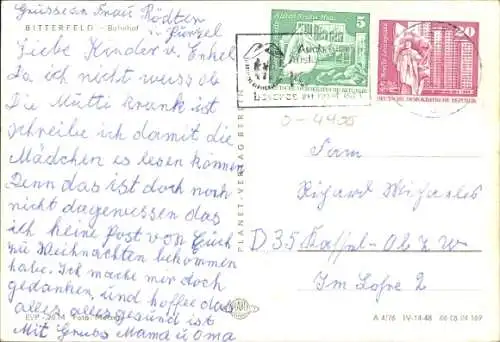 Grüssean Frau Rödter
Künzel
BITTERFELD - Bahnhof
Liebe Kinder u. Enkel
Da ich nicht weiss ob
Die Mutti krank ist
schreibe ich damit die
Mädchen es lesen können
Denn das ist doch noch
nicht dagewessen das
ich keine Post von Euch
zu Weihnachten bekommen
habe. Ich mache mir doch
gedanken, und hoffee das
alles alles gesund ist
Mit Gruss Mama u Oma
EVP -,20 M Foto:
PLANET-VERLAG BERLIN
5
DEUTSCHE DEMOKRATISCHE REPUBLIK
20
DEUTSCHE DEMOKRATISCHE REPUBLIK
D-4400
Fam
Richard Michaelis
D 35 Kassel-Ob Z W
Im Lohre 2
A 4/76 IV-14-48 06 08 04 169